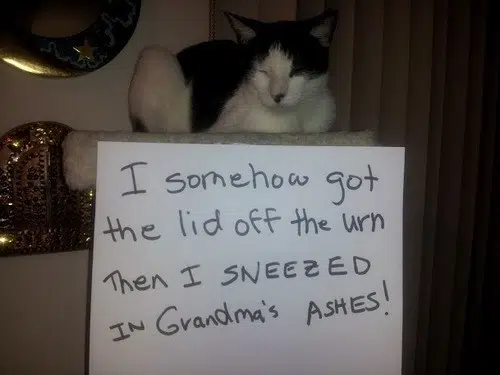 I somehow got
the lid off the urn
Then I SNEEZED
IN Grandma's ASHES!